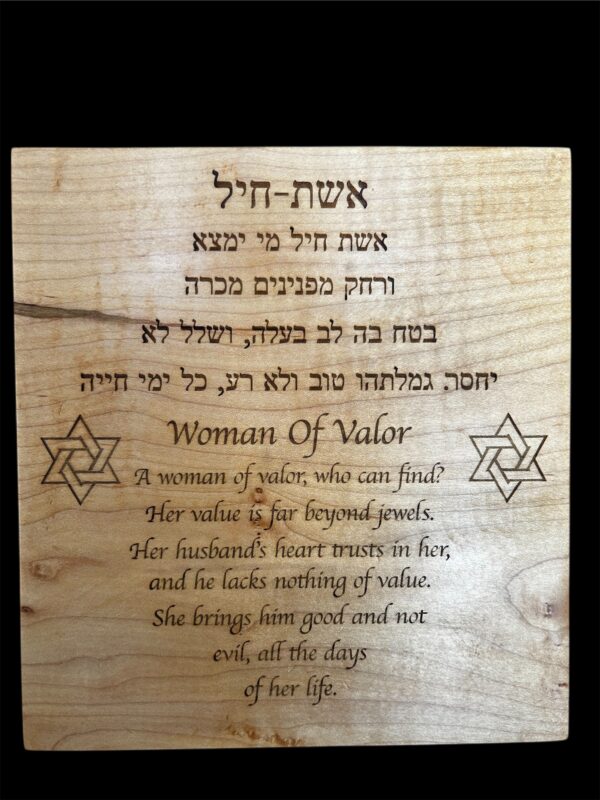 אשת-חיל
אשת חיל מי ימצא
ורחק מפנינים מכרה
בטח בה לב בעלה, ושלל לא
יחסר. גמלתהו טוב ולא רע, כל ימי חייה
Woman Of Valor
A woman of valor, who can find?
Her value is far beyond jewels.
Her husband's heart trusts in her,
and he lacks nothing of value.
She brings him good and not
evil, all the days
of her life.